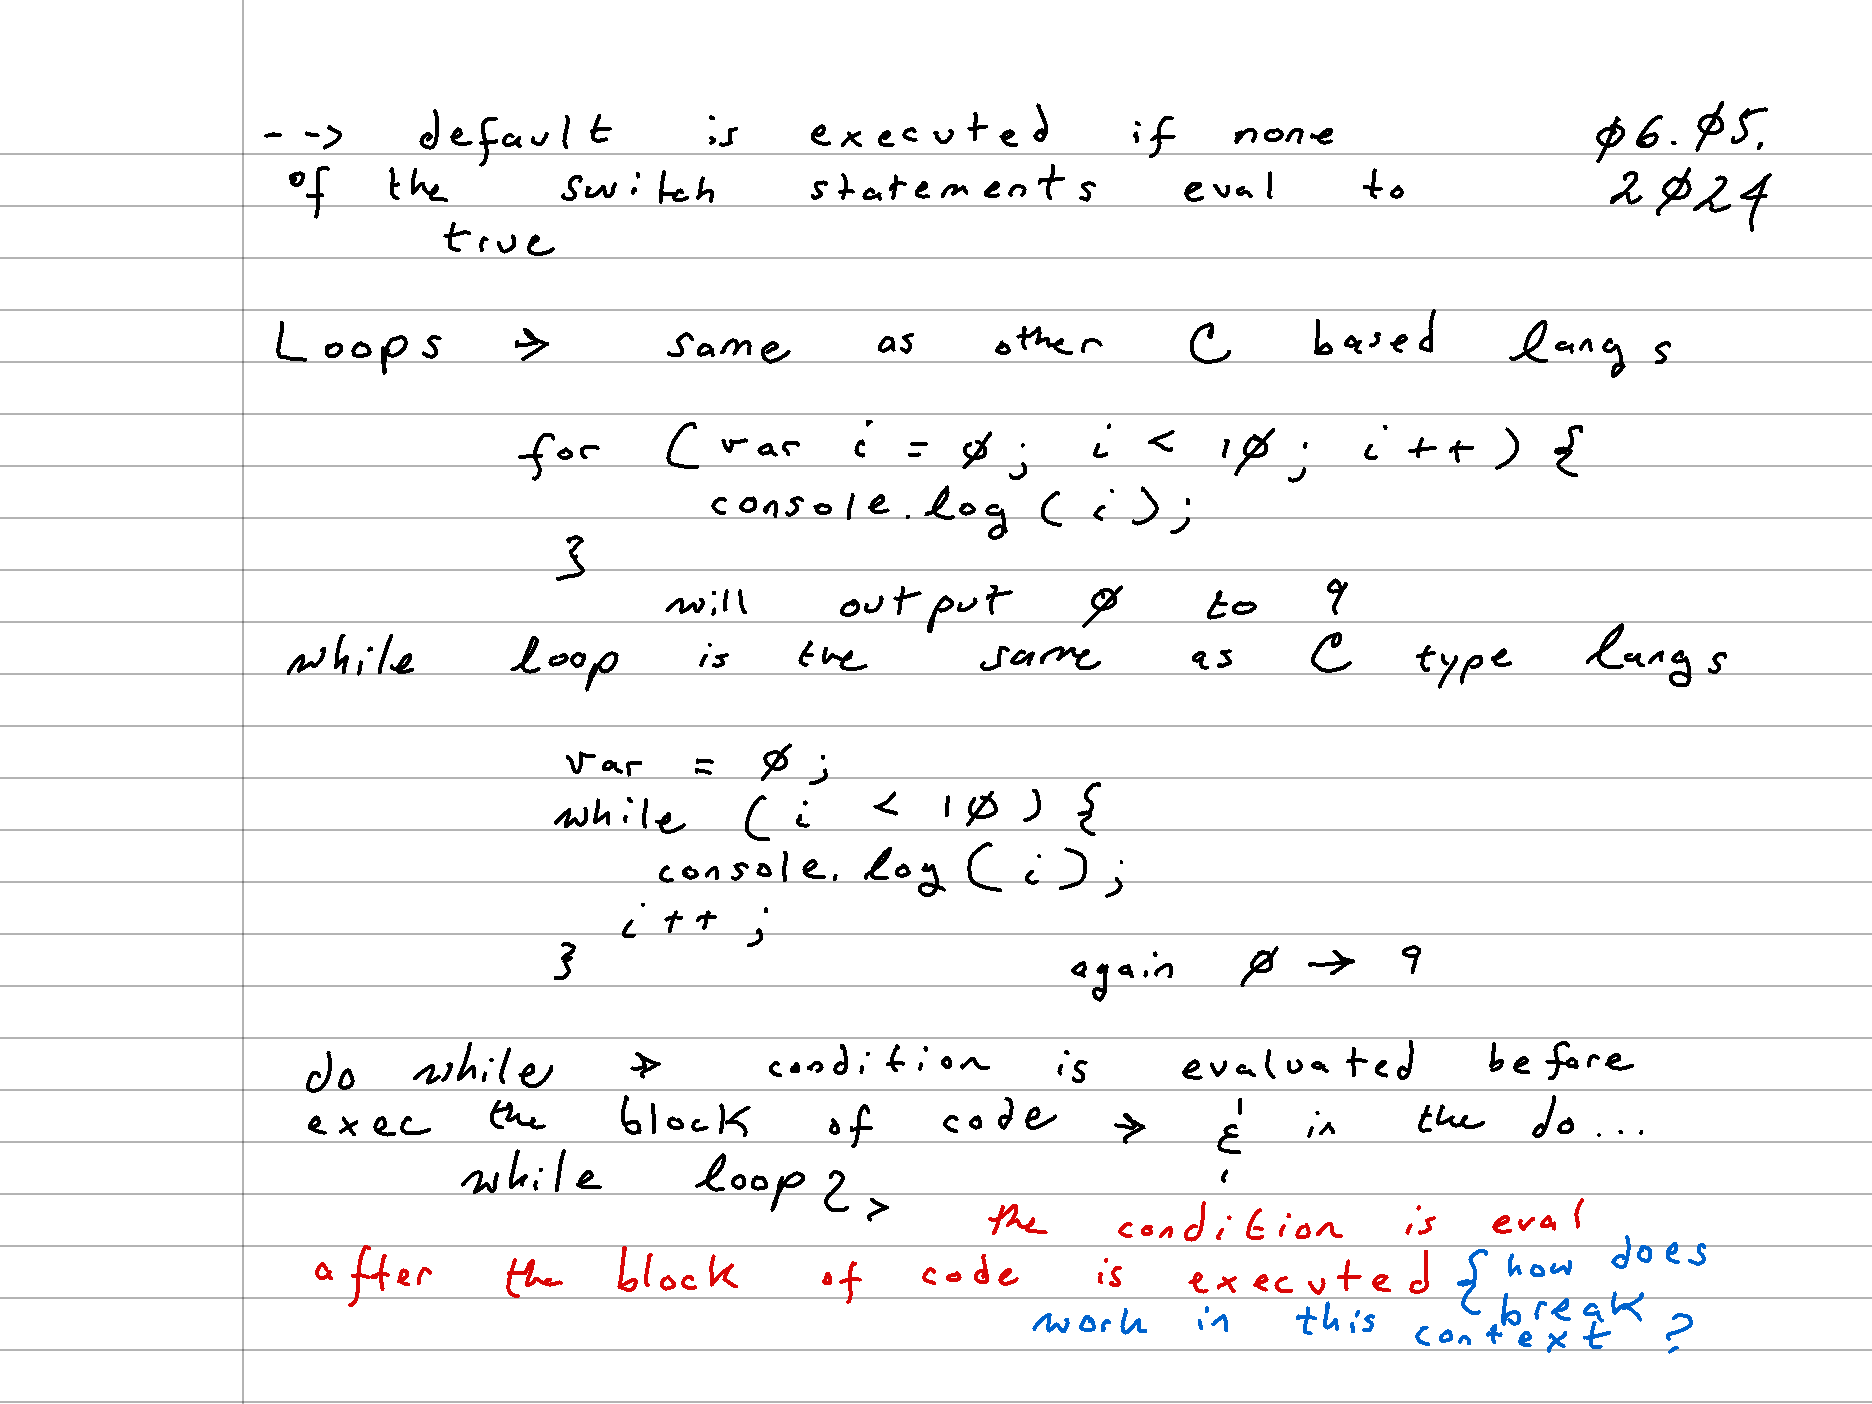 --> default is executed if none Ø6.Ø5.
of the switch statements eval to 2Ø24
true
Loops → same as other C based langs
for (var i = Ø; i < 1Ø; i++) {
console.log(i);
}
will output Ø to 9
while loop is the same as C type langs
var = Ø;
while (i < 1Ø) {
console.log(i);
i++;
}
again Ø → 9
do while → condition is evaluated before
exec the block of code → & in the do...
while loop
the condition is eval
after the block of code is executed { how does
break
work in this context?